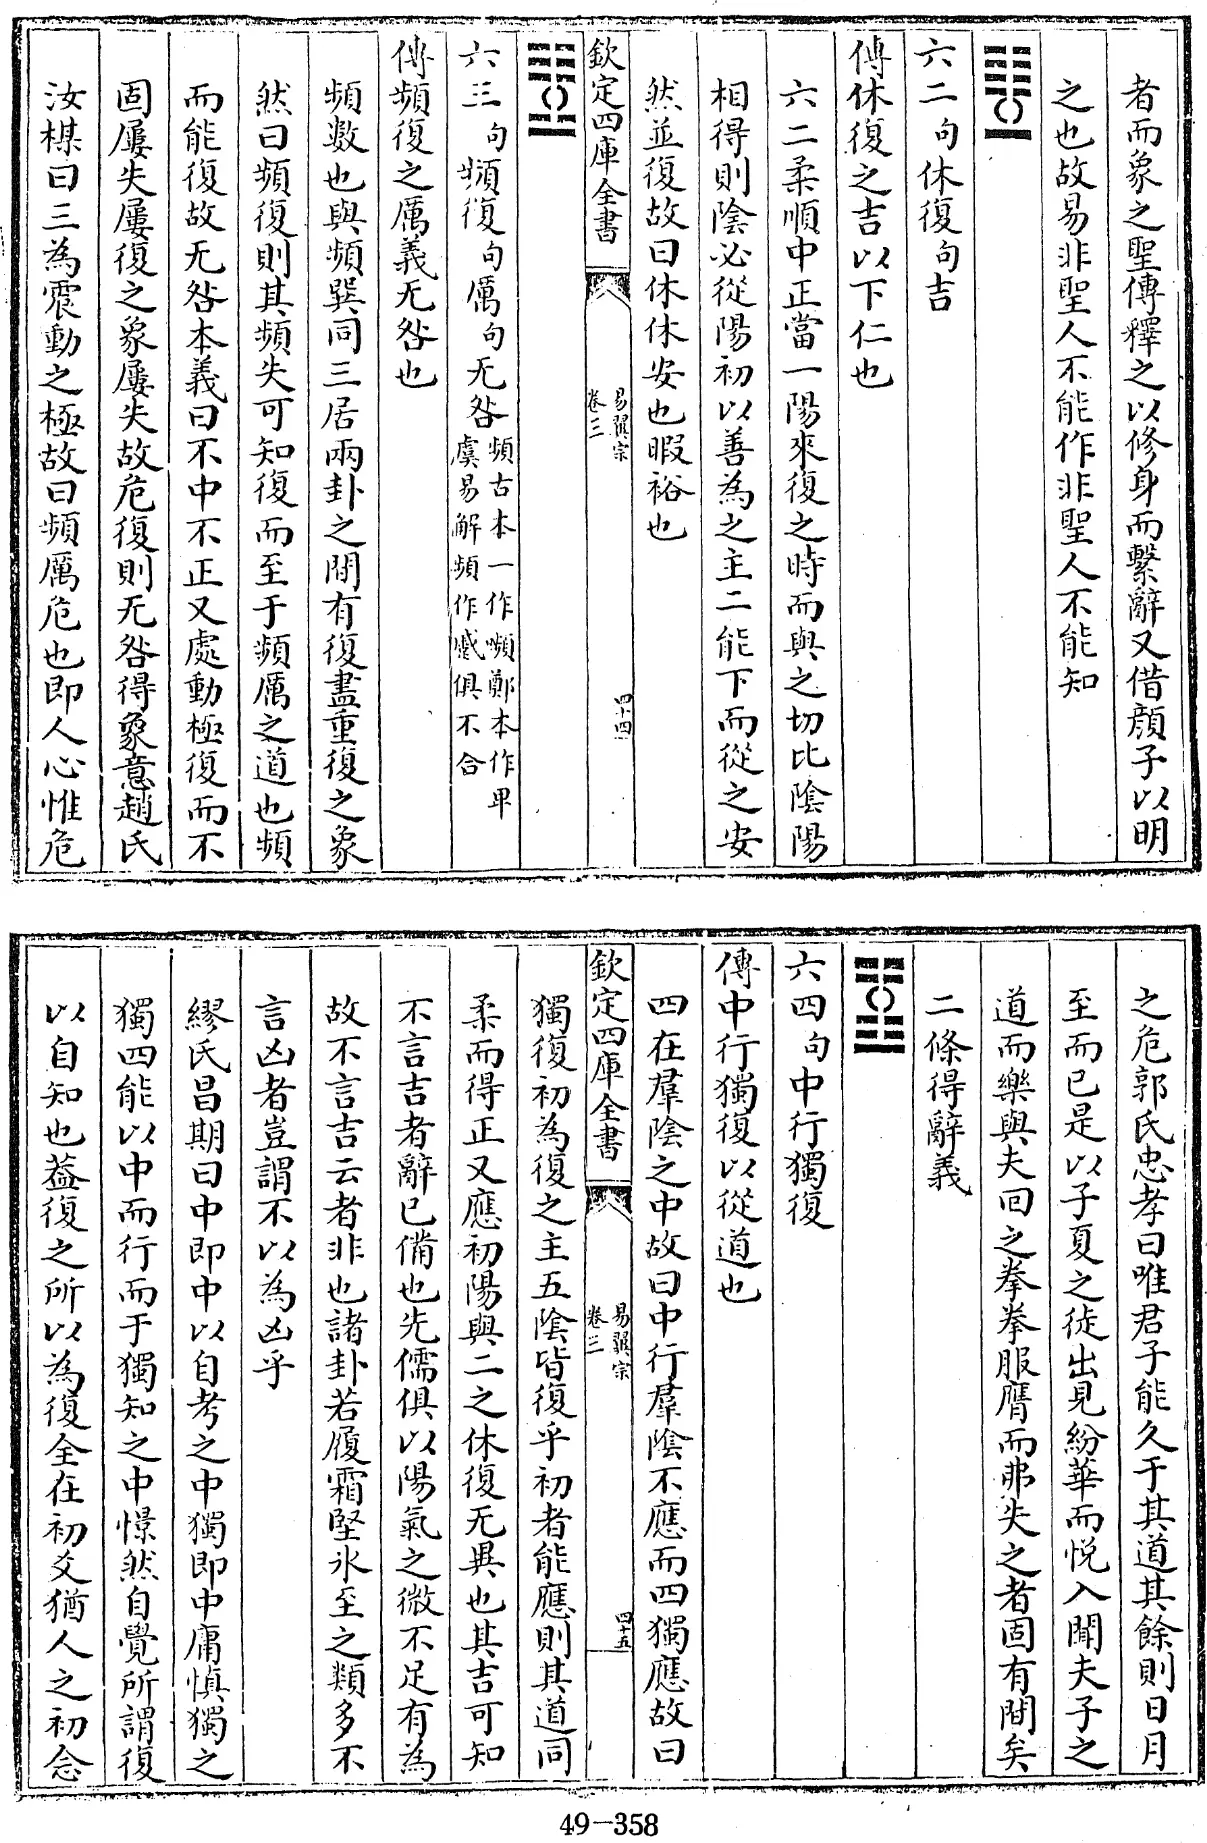 者而象之聖傳釋之以修身而繫辭又借顏子以明
之也故易非聖人不能作非聖人不能知
六二句休復句吉
傳休復之吉以下仁也
六二柔順中正當一陽來復之時而與之切比陰陽
相得則陰必從陽初以善為之主二能下而從之安
然並復故曰休休安也暇裕也
欽定四庫全書
易翼宗
卷三
四十四
六三句頻復句厲句无咎
頻古本一作嚬鄭本作卑
虞易解頻作慼俱不合
傳頻復之厲義无咎也
頻數也與頻巽同三居兩卦之閒有復盡重復之象
然曰頻復則其頻失可知復而至于頻厲之道也頻
而能復故无咎本義曰不中不正又處動極復而不
固屢失屢復之象屢失故危復則无咎得象意趙氏
汝楳曰三為震動之極故曰頻厲危也即人心惟危
之危郭氏忠孝曰唯君子能久于其道其餘則日月
至而已是以子夏之徒出見紛華而悅入聞夫子之
道而樂與夫回之拳拳服膺而弗失之者固有閒矣
二條得辭義
六四句中行獨復
傳中行獨復以從道也
四在羣陰之中故曰中行羣陰不應而四獨應故曰
欽定四庫全書
易翼宗
卷三
四十五
獨復初為復之主五陰皆復乎初者能應則其道同
柔而得正又應初陽與二之休復无異也其吉可知
不言吉者辭已備也先儒俱以陽氣之微不足有為
故不言吉云者非也諸卦若履霜堅氷至之類多不
言凶者豈謂不以為凶乎
繆氏昌期曰中即中以自考之中獨即中庸慎獨之
獨四能以中而行而于獨知之中憬然自覺所謂復
以自知也葢復之所以為復全在初爻猶人之初念
49-358